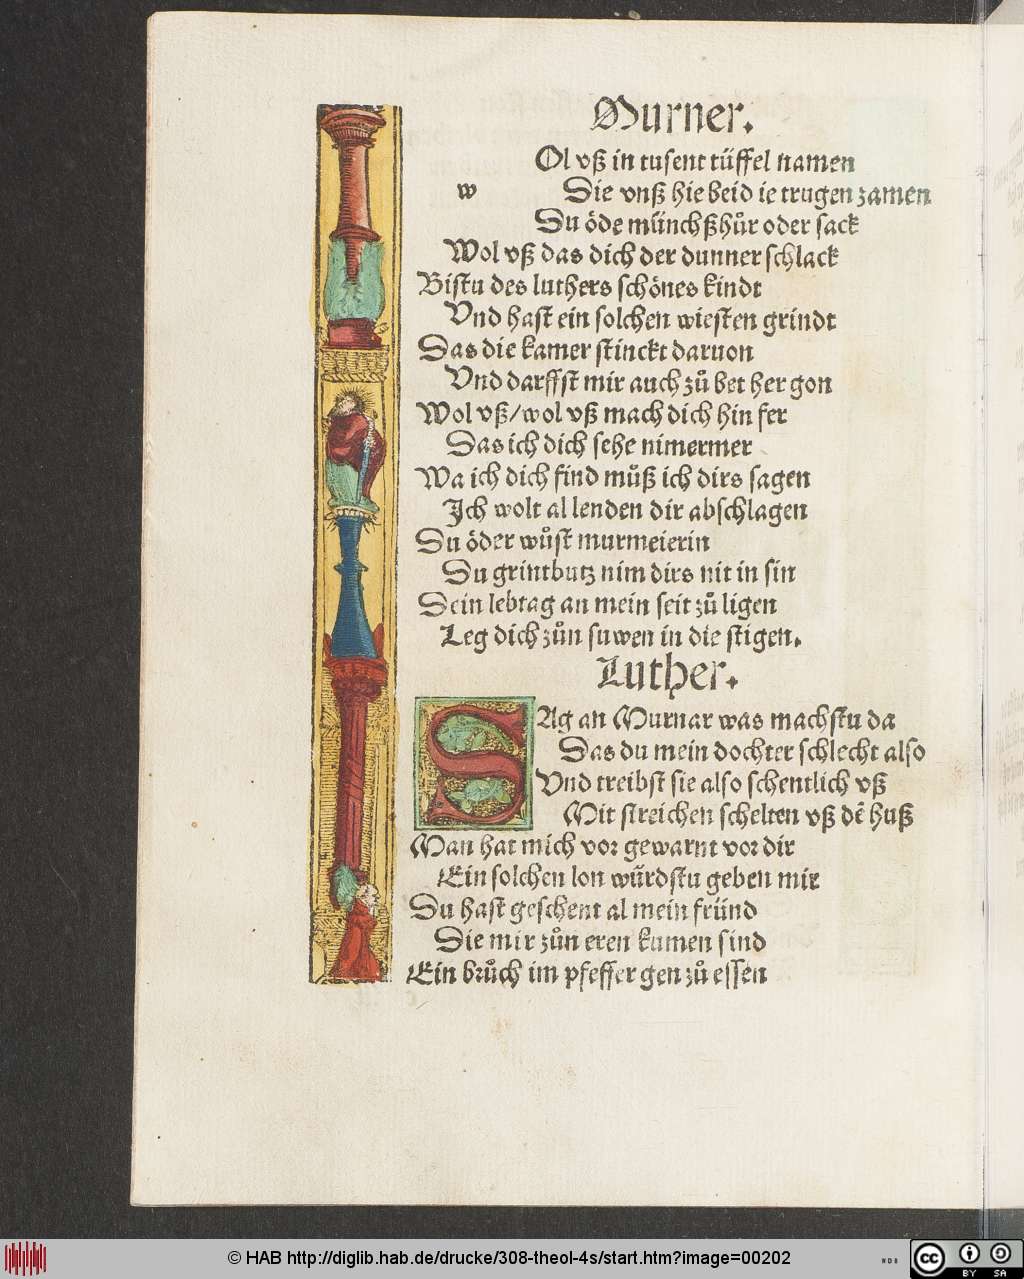 Murner.
Ol vß in tusent tüffel namen
w Die vnß hie beid ie trugen zamen
Du öde münchßhůr oder sack
Wol vß das dich der dunner schlack
Bistu des luthers schönes kindt
Vnd hast ein solchen wiesten grindt
Das die kamer stinckt daruon
Vnd darffst mir auch zů bet her gon
Wol vß/wol vß mach dich hin fer
Das ich dich sehe nimermer
Wa ich dich find můß ich dirs sagen
Ich wolt al lenden dir abschlagen
Du öder wůst murmeierin
Du grintbutz nim dirs nit in sin
Dein lebtag an mein seit zů ligen
Leg dich zůn suwen in die stigen.
Luther.
SAg an Murnar was machstu da
Das du mein dochter schlecht also
Vnd treibst sie also schentlich vß
Mit streichen schelten vß dẽ huß
Man hat mich vor gewarnt vor dir
Ein solchen lon würdstu geben mir
Du hast geschent al mein fründ
Die mir zůn eren kumen sind
Ein brůch im pfeffer gen zů essen
© HAB http://diglib.hab.de/drucke/308-theol-4s/start.htm?image=00202
WDB
cc BY SA